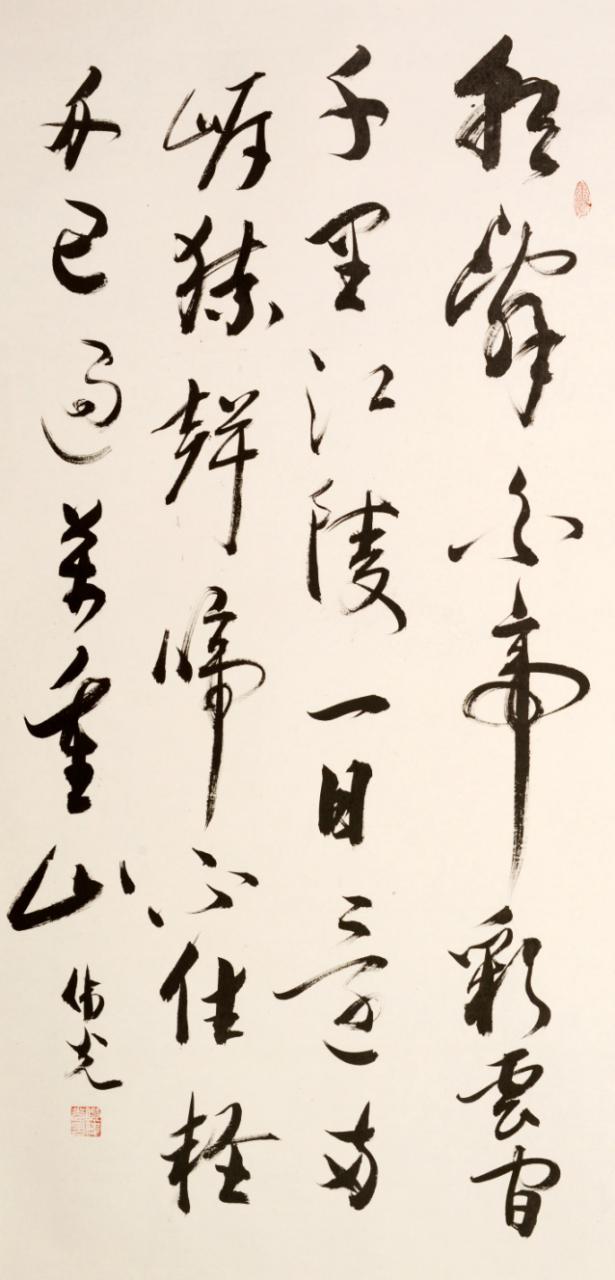 朝辭白帝彩雲間
千里江陵一日還兩
岸猿聲啼不住輕
舟已過萬重山 偉光